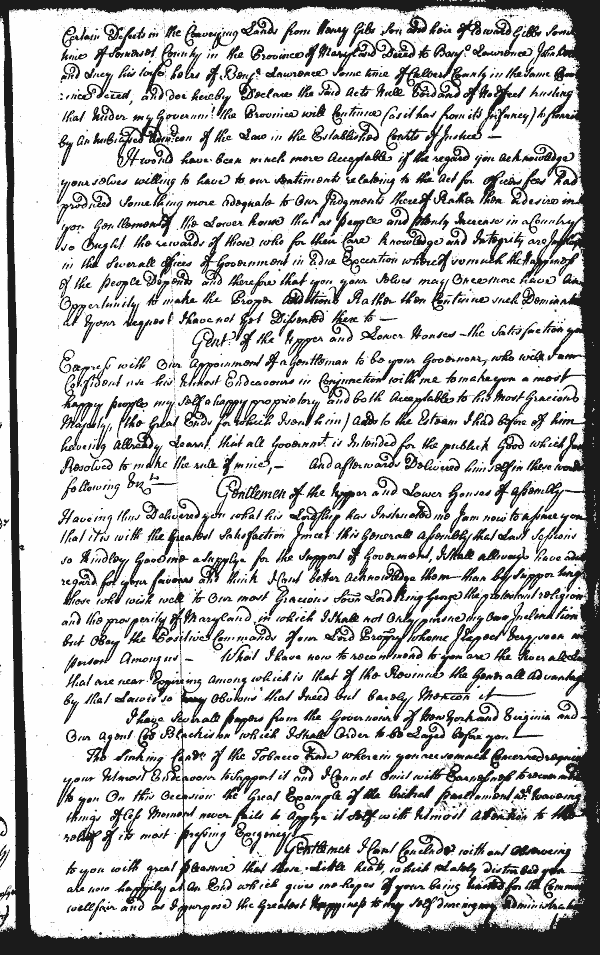 Certain Defects in the Conveying Lands from Henry Gibs Son and heir of Edward Gibbs Some
time of Somerset County in the Province of Maryland Deced to Benj.ª Lawrence John
and Lucy his wife heirs of Benj.ª Lawrence Some time of Calvert County in the same Prov
:ince deced, and doe hereby Declare the said Acts Null Void and of No Effect trusting
that under my Governm.t the Province will Continue (as it has from its Infancy) to
by An unbiased of the Law in the Established Courts of Justice —
It would have been much more Acceptable if the regard you acknowledge
yourselves willing to have to our Sentiments relateing to the Act for officers fees had
produced Something more adequate to Our Judgments thereof Rather then
you Gentlemen of the Lower house that as people and plenty Increase in a Country
so Ought the rewards of those who for their Care knowledge and Integrity are
in the Severall offices of Government in Due Execution whereof so much the happiness
of the people Depends and therefore that you your selves may Once more have an
Opportunity to make the Proper additions Rather then Continue such
at your request I have not Dissented there to —
Gent.n of the Upper and Lower Houses — the Satisfaction you
Express with Our Appointment of a Gentleman to be your Governour, who will I am
Confident use his Utmost Endeavours in Conjunction with me to make you a most
happy people my self a happy proprietory and both Acceptable to his Most Gracious
Majesty, (the Great Ends for which I send him) Adds to the Esteem I had before of him
haveing Allready Learnt that all Governm.t is Intended for the publick Good which I am
Resolved to make the rule of mine, — And afterwards Delivered himself in these words
following
Gentlemen of the Upper and Lower Houses of Assembly —
Haveing thus Delivered you what his Lordship has Instructed me I am now to assure you
that it is with the Greatest Satisfaction I meet this Generall Assembly that Last Sessions
so kindley a supply for the support of Government, I shall allways have a
regard for your favours and think I Cant better Acknowledge them than by Supporting
those who wish well to Our most Gracious Sover.n Lord King George the protestant religion
and the prosperity of Maryland, in which I shall not Only pursue my own Inclination
but Obey the Positive Commands of our Lord Propry whome I expect very soon in
person Among us — What I have now to recommend to you are the
that are near Expireing Among which is that of the Revenue the Generall Advantage
by that Law is so Obvious that I need but barely Mention it —
I have Severall papers from the Governours of New York and Virginia and
Our Agent Coll Blackiston which I shall Order to be Layed before you —
The Sinking of the Tobacco trade wherein you are so much Concerned
your Utmost Endeavour to Support it and I Cannot omit with Earnestness to recommend
to you On this Occasion the Great Example of the British parliament w.ch waveing
things of Less Moment never fails to Apply it self with Utmost Attention to the
relief of its most pressing Exigencys —
Gentlemen I Cant Conclude with out Observing
to you with great pleasure that those Little heats, which Lately disturbed you
are now happily at An End which gives me hopes of your being United for the Common
wellfair and as I purpose the Greatest happiness to my self dureing my Administration